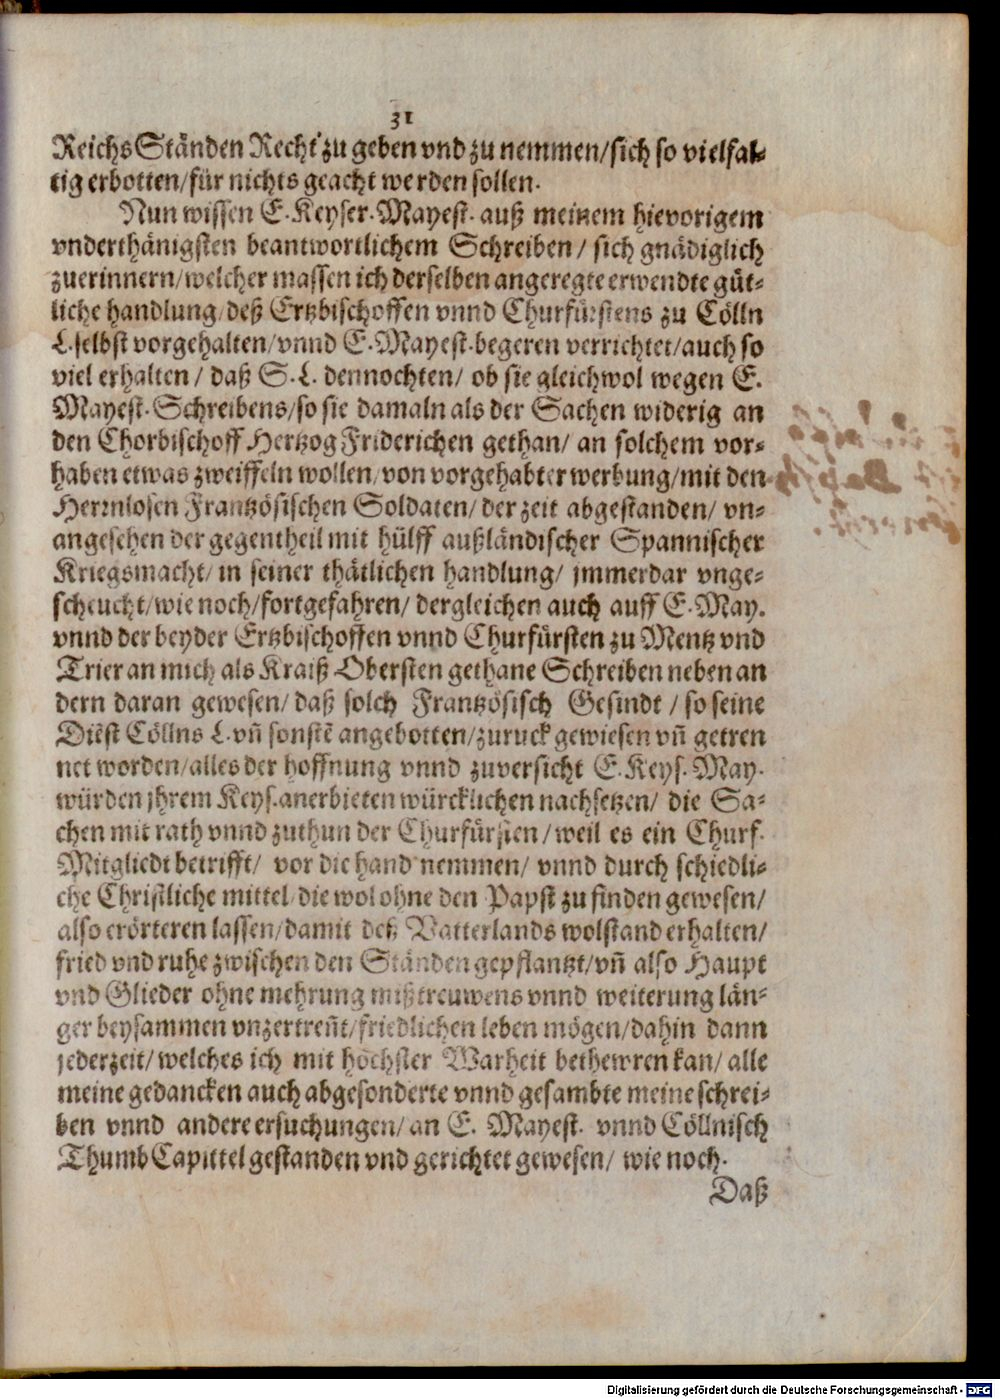 31
Reichs Ständen Recht zu geben vnd zu nemmen/sich so vielfal-
tig erbotten/für nichts geacht werden sollen.
Nun wissen E. Keyser. Mayest. auß meinem hievorigem
vnderthänigsten beantwortlichem Schreiben / sich gnädiglich
zuerinnern/welcher massen ich derselben angeregte erwendte güt-
liche handlung/deß Ertzbischoffen vnnd Churfürstens zu Cölln
L. selbst vorgehalten/vnnd E. Mayest. begeren verrichtet/auch so
viel erhalten / daß S. L. dennochten/ ob sie gleichwol wegen E.
Mayest. Schreibens/so sie damaln als der Sachen widerig an
den Chorbischoff Hertzog Friderichen gethan/ an solchem vor-
haben etwas zweiffeln wollen/von vorgehabter werbung/mit den
Herrnlosen Frantzösischen Soldaten/ der zeit abgestanden/ vn-
angesehen der gegentheil mit hülff außländischer Spannischer
Kriegsmacht/ in seiner thätlichen handlung/ jmmerdar vnge-
scheucht/wie noch/fortgefahren/ dergleichen auch auff E. May.
vnnd der beyder Ertzbischoffen vnnd Churfürsten zu Mentz vnd
Trier an mich als Kraiß Obersten gethane Schreiben neben an
dern daran gewesen/ daß solch Frantzösisch Gesindt / so seine
Diēst Cöllns L. vñ sonstē angebotten/zuruck gewiesen vñ getren
net worden/alles der hoffnung vnnd zuversicht E. Keys. May.
würden jhrem Keys. anerbieten würcklichen nachsetzen/ die Sa-
chen mit rath vnnd zuthun der Churfürsten / weil es ein Churf.
Mitgliedt betrifft/ vor die hand nemmen/ vnnd durch schiedli-
che Christliche mittel/die wol ohne den Papst zu finden gewesen/
also erörteren lassen/damit deß Vatterlands wolstand erhalten/
fried vnd ruhe zwischen den Ständen gepflantzt/vñ also Haupt
vnd Glieder ohne mehrung mißtreuwens vnnd weiterung län-
ger beysammen vnzertreñt/friedlichen leben mögen/dahin dann
jederzeit/welches ich mit höchster Warheit bethewren kan/ alle
meine gedancken auch abgesonderte vnnd gesambte meine schrei-
ben vnnd andere ersuchungen/ an E. Mayest. vnnd Cöllnisch
Thumb Capittel gestanden vnd gerichtet gewesen/ wie noch.
Daß
Digitalisierung gefördert durch die Deutsche Forschungsgemeinschaft - DFG